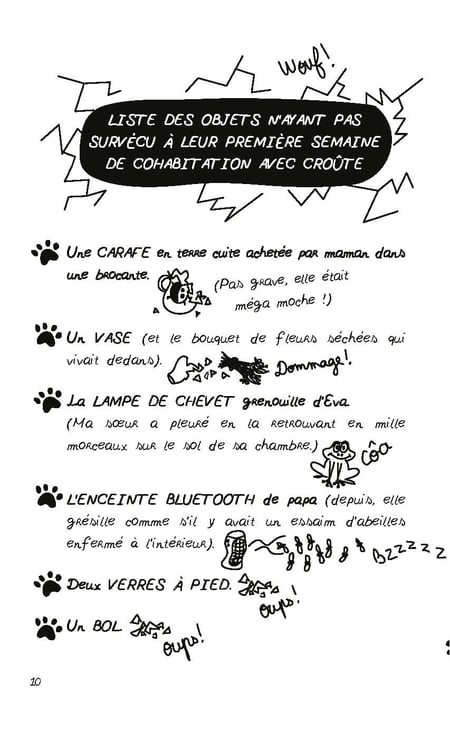 Wouf!
LISTE DES OBJETS N'AYANT PAS
SURVÉCU À LEUR PREMIÈRE SEMAINE
DE COHABITATION AVEC CROÛTE
Une CARAFE en terre cuite achetée par maman dans
une brocante.
(Pas grave, elle était
méga moche !)
Un VASE (et le bouquet de fleurs séchées qui
vivait dedans).
Dommage!
La LAMPE DE CHEVET grenouille d'Eva
(Ma sœur a pleuré en la retrouvant en mille
morceaux sur le sol de sa chambre.)
CÔA
L'ENCEINTE BLUETOOTH de papa (depuis, elle
grésille comme s'il y avait un essaim d'abeilles
enfermé à l'intérieur).
BZZZZZ
Deux VERRES À PIED.
oups!
Un BOL
oups!
10